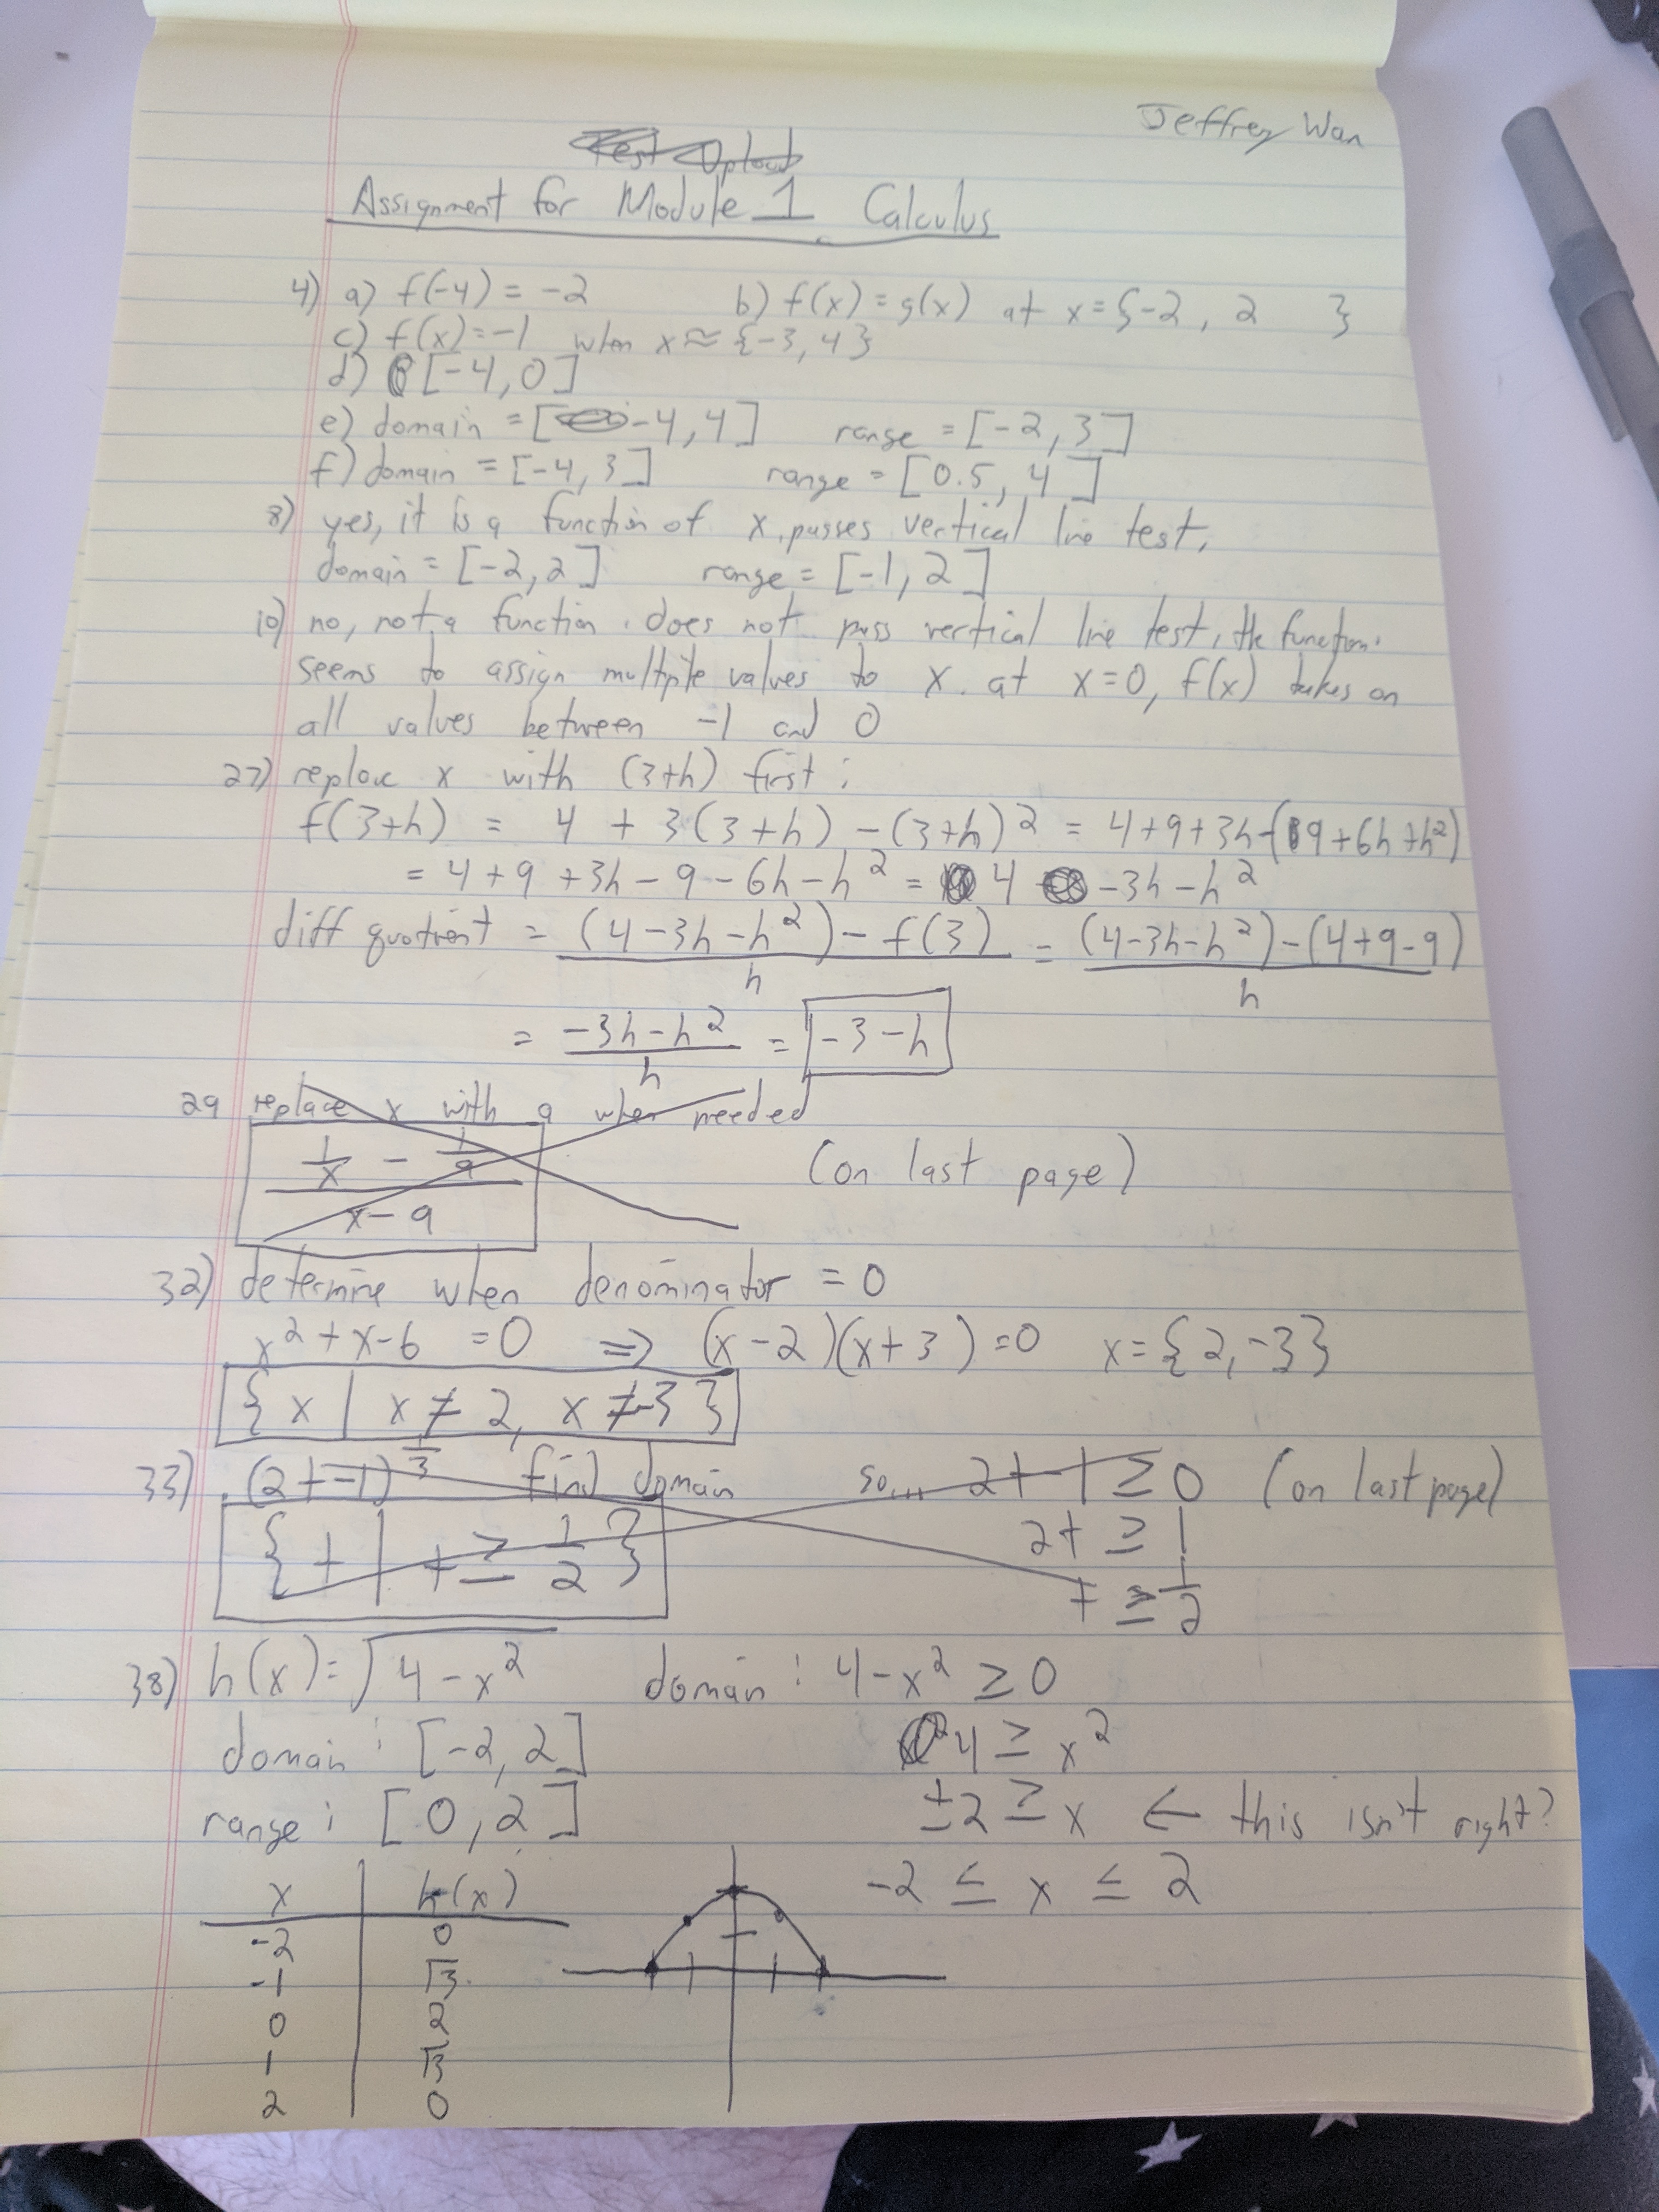 Jeffrey Wan
Test Upload
Assignment for Module 1 Calculus
4) a) f(-4) = -2 b) f(x) = g(x) at x = {-2, 2 }
c) f(x) = -1 when x ≈ {-3, 4}
d) [-4, 0]
e) domain = [-4, 4] range = [-2, 3]
f) domain = [-4, 3] range = [0.5, 4]
8) yes, it is a function of x, passes vertical line test.
domain = [-2, 2] range = [-1, 2]
10) no, not a function. does not pass vertical line test, the function
seems to assign multiple values to x. at x=0, f(x) takes on
all values between -1 and 0
27) replace x with (3+h) first:
f(3+h) = 4 + 3(3+h) - (3+h)² = 4+9+3h-(9+6h+h²)
= 4+9+3h-9-6h-h² = 4 -3h-h²
diff quotient = ((4-3h-h²) - f(3))/h = ((4-3h-h²)-(4+9-9))/h
= (-3h-h²)/h = -3-h
29 replace x with a when needed
(1/x - 1/a)/(x-a) (on last page)
32) determine when denominator = 0
x²+x-6 = 0 ⇒ (x-2)(x+3) = 0 x = {2, -3}
{x | x ≠ 2, x ≠ -3}
33) (2t-1)^(1/3) find domain so... 2t-1 ≥ 0 (on last page)
{t | t ≥ 1/2} 2t ≥ 1
t ≥ 1/2
38) h(x) = √4-x² domain: 4-x² ≥ 0
domain: [-2, 2] 4 ≥ x²
range: [0, 2] ±2 ≥ x ← this isn't right?
x h(x) -2 ≤ x ≤ 2
-2 0
-1 √3
0 2
1 √3
2 0